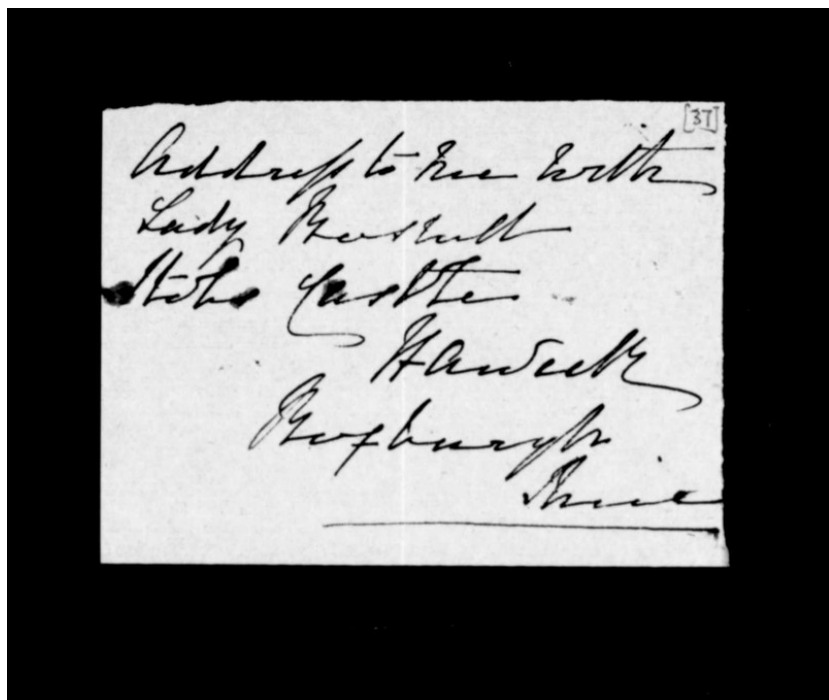 [37]
Address to me with
Lady Boswell
Stobs Castle
Hawick
Roxburgh
Shire